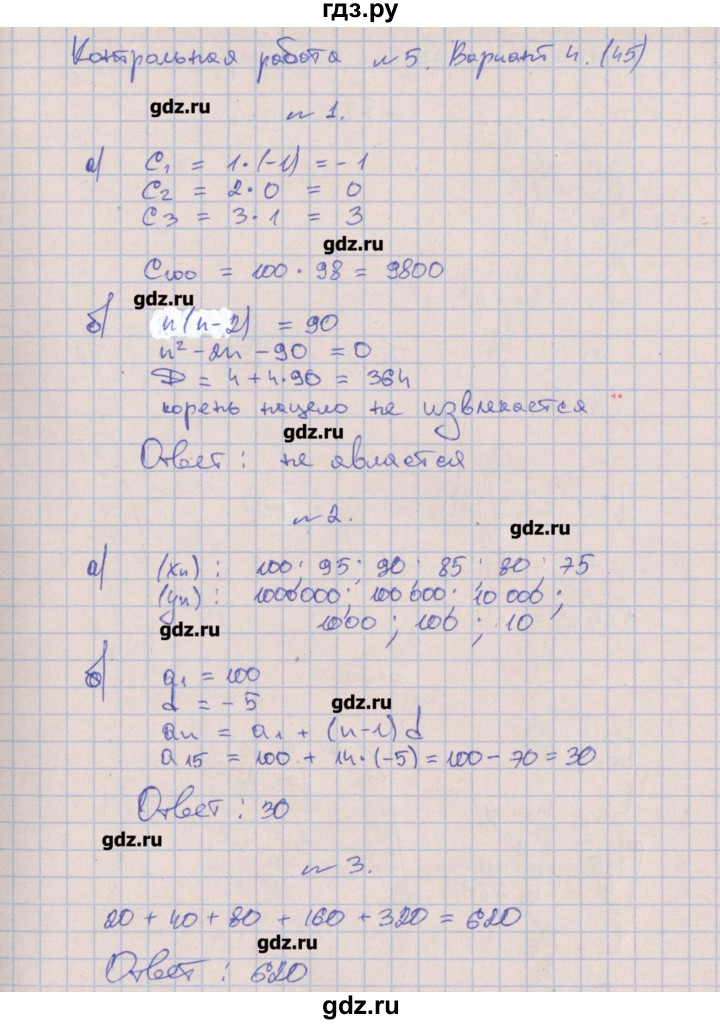 гдз.ру
Контрольная работа №5. Вариант 4. (45)
gdz.ru
№1.
а) C₁ = 1·(-1) = -1
C₂ = 2·0 = 0
C₃ = 3·1 = 3
gdz.ru
C₁₀₀ = 100·98 = 9800
gdz.ru
б) n(n-2) = 90
n² - 2n - 90 = 0
D = 4+4·90 = 364
корень нацело не извлекается
gdz.ru
Ответ: не является
№2.
gdz.ru
а) (xₙ): 100; 95; 90; 85; 80; 75
(yₙ): 1000000; 100 000; 10 000;
1000; 100; 10
gdz.ru
б) a₁ = 100
d = -5
gdz.ru
aₙ = a₁ + (n-1)d
a₁₅ = 100 + 14·(-5) = 100-70 = 30
Ответ: 30
gdz.ru
№3.
20 + 40 + 80 + 160 + 320 = 620
gdz.ru
Ответ: 620
gdz.ru